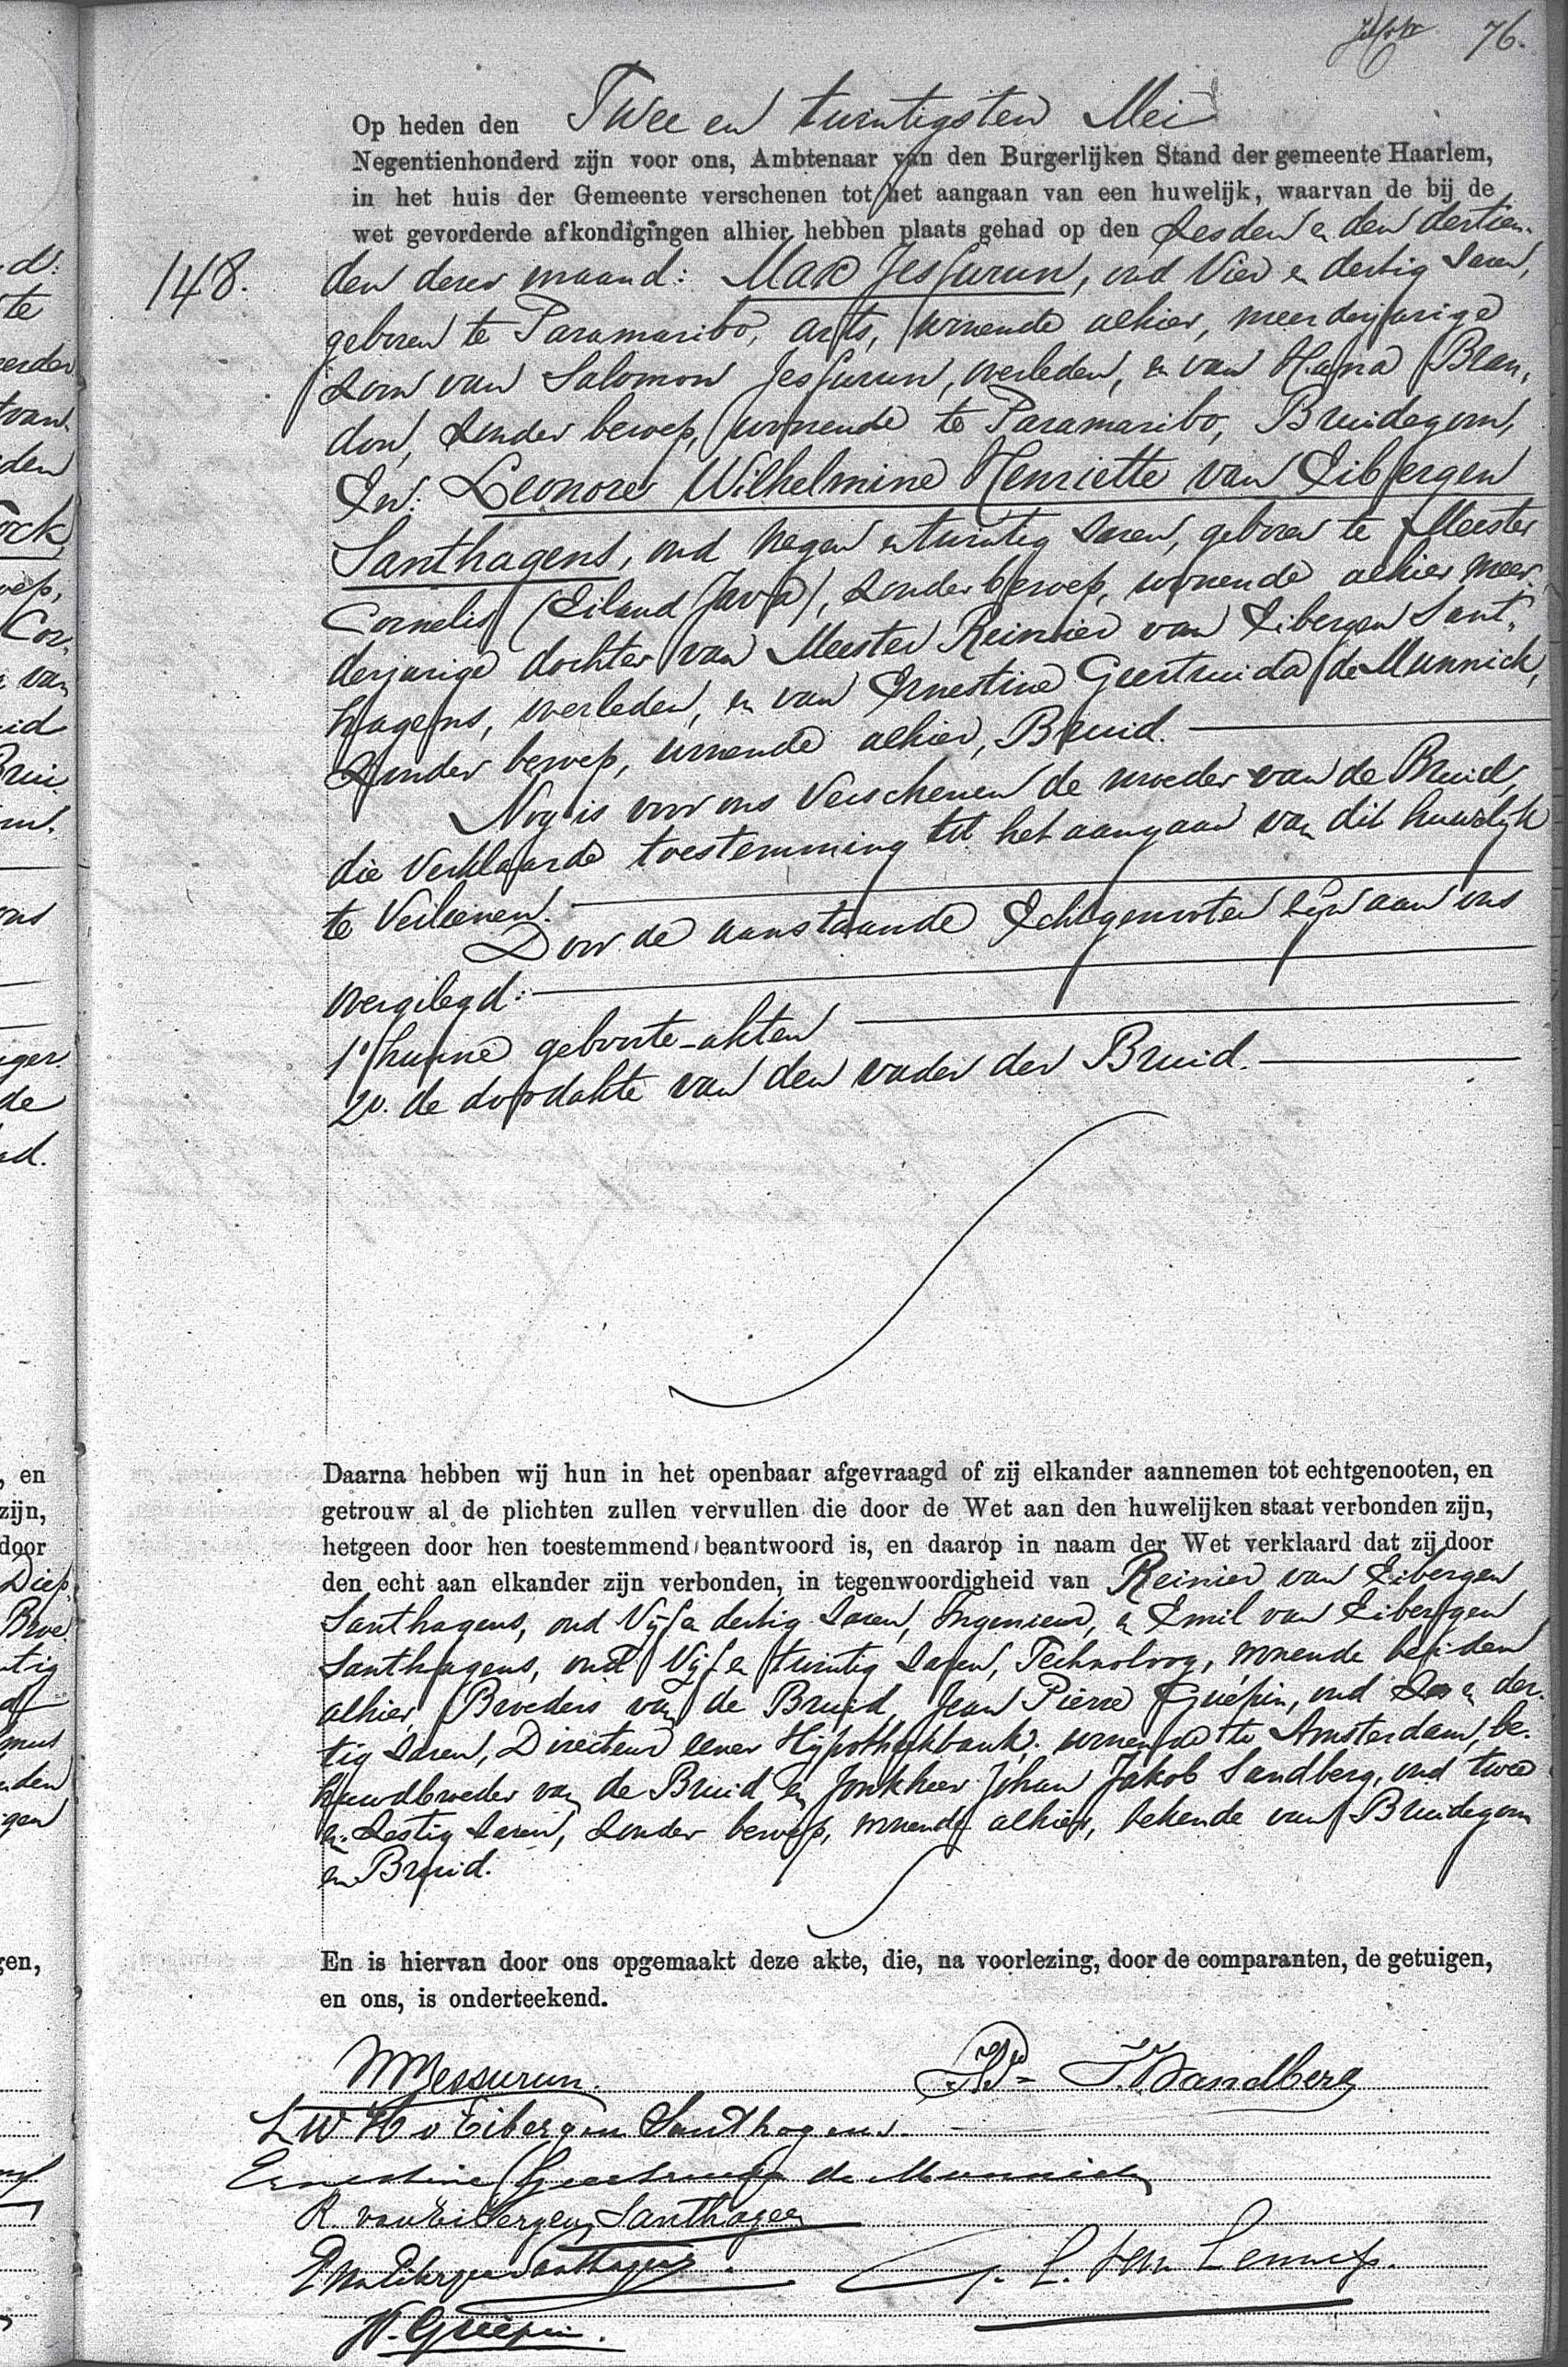 76.
Op heden den Twee en twintigsten Mei
Negentienhonderd zijn voor ons, Ambtenaar van den Burgerlijken Stand der gemeente Haarlem,
in het huis der Gemeente verschenen tot het aangaan van een huwelijk, waarvan de bij de
wet gevorderde afkondigingen alhier hebben plaats gehad op den Zesden en den dertien-
148.
den dezer maand: Max Jessurun, oud Vier en dertig Jaren,
geboren te Paramaribo, arts, wonende alhier, meerderjarige
Zoon van Salomon Jessurun, overleden, en van Hana Bran-
don, Zonder beroep, wonende te Paramaribo, Bruidegom,
En: Leonore Wilhelmine Henriette van Eibergen
Santhagens, oud Negen en twintig Jaren, geboren te Meester
Cornelis (Eiland Java), Zonder beroep, wonende alhier, meer-
derjarige dochter van Meester Reinier van Eibergen Sant-
hagens, overleden, en van Ernestine Geertruida de Munnick,
Zonder beroep, wonende alhier, Bruid.
Nog is voor ons Verschenen de moeder van de Bruid,
die Verklaarde toestemming tot het aangaan van dit huwelijk
te Verleenen.
Door de aanstaande Echtgenooten zijn aan ons
overgelegd:
1o hunne geboorte-akten
2o. de doodakte van den vader der Bruid.
Daarna hebben wij hun in het openbaar afgevraagd of zij elkander aannemen tot echtgenooten, en
getrouw al de plichten zullen vervullen die door de Wet aan den huwelijken staat verbonden zijn,
hetgeen door hen toestemmend beantwoord is, en daarop in naam der Wet verklaard dat zij door
den echt aan elkander zijn verbonden, in tegenwoordigheid van Reinier van Eibergen
Santhagens, oud Vijf en dertig Jaren, Ingenieur, en Emil van Eibergen
Santhagens, oud Vijf en twintig Jaren, Technoloog, wonende beiden
alhier, Broeders van de Bruid, Jean Pierre Guépin, oud Zes en der-
tig Jaren, Directeur eener Hypotheekbank, wonende te Amsterdam, be-
huwdbroeder van de Bruid en Jonkheer Johan Jakob Sandberg, oud twee
en Zestig Jaren, Zonder beroep, wonende alhier, bekende van Bruidegom
en Bruid.
En is hiervan door ons opgemaakt deze akte, die, na voorlezing, door de comparanten, de getuigen,
en ons, is onderteekend.
MJessurun. Sandberg
L W H v Eibergen Santhagens.
Ernestine Geertruida de Munnick
R. van Eibergen Santhagens
E van Eibergen Santhagens.
Guépin.